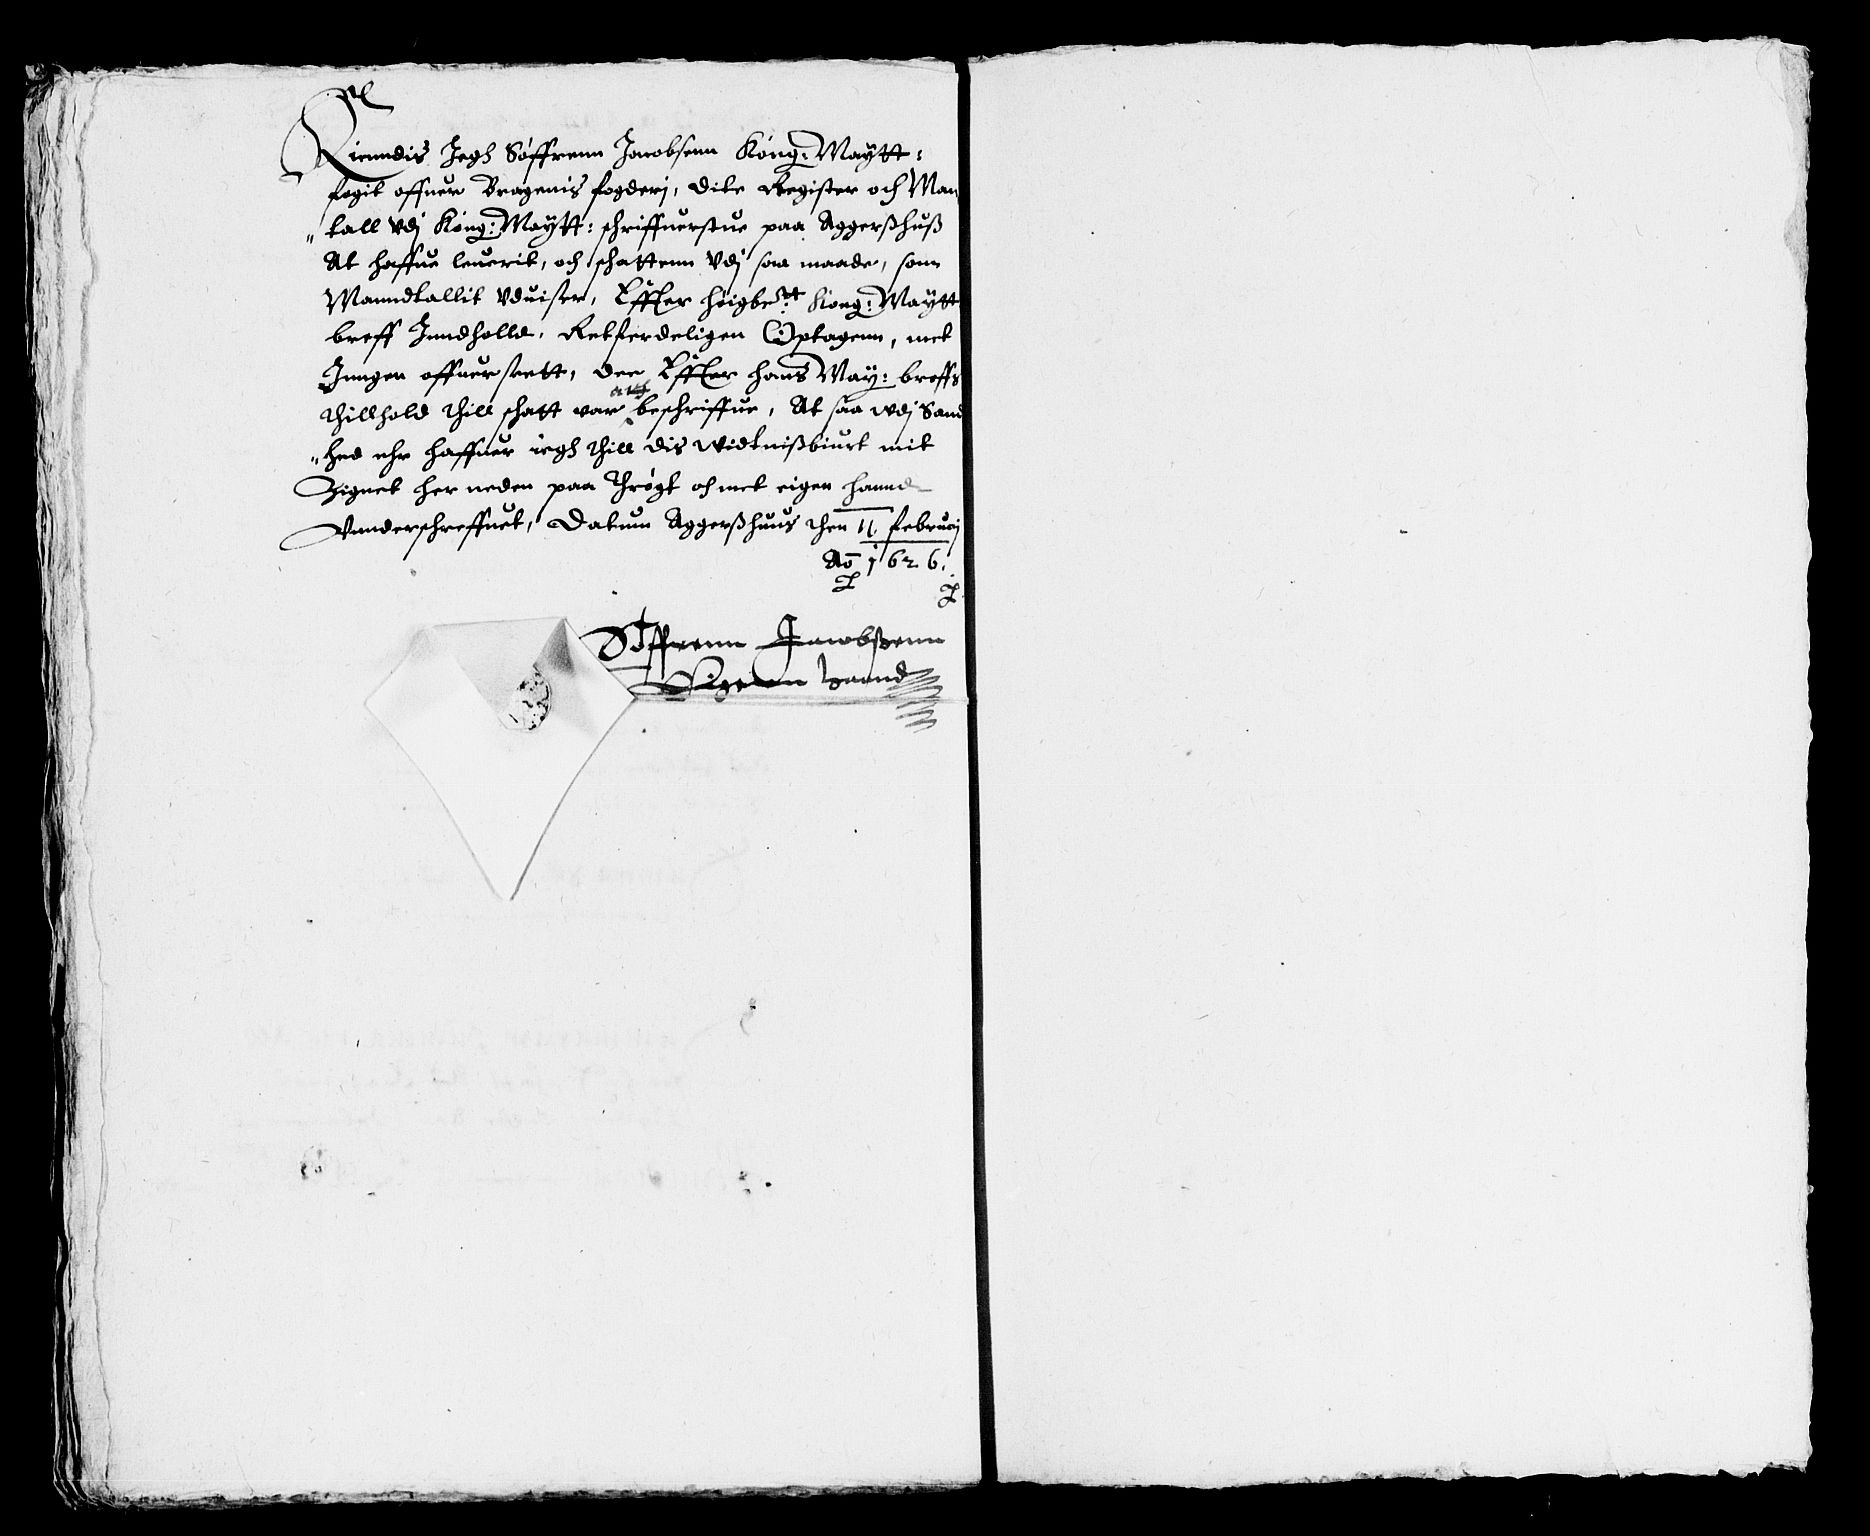 Kienndis Jegh Søffrenn Jacobsenn Kong: Maytt:
fogit offuer Bragenis fogderj, Dite Register och Man
„ tall Vdj Kong: Maytt: schriffuerstue paa Aggerßhuß
At haffue leuerit, och schattenn Vdj saa maade, som
Manndtallit Vduiser, Effter høigbe:tt Kong: Maytt
breff Jnndholld, Retferdeligen Optagenn, met
Jnngen offuerseett, Der Effter hans May: breffs
thillhold thill schatt var beschriffue, At saa wdj Sand
„ hed ehr haffuer iegh thill dis widtnißbiurt mit
Zignet her neden paa thrøgt oh met eigen hannd
Vnnderschreffuet, Datum Aggerßhuus then 11 februarij
Ao 1626.
Søffrenn Jacobsenn
Eigenn haand